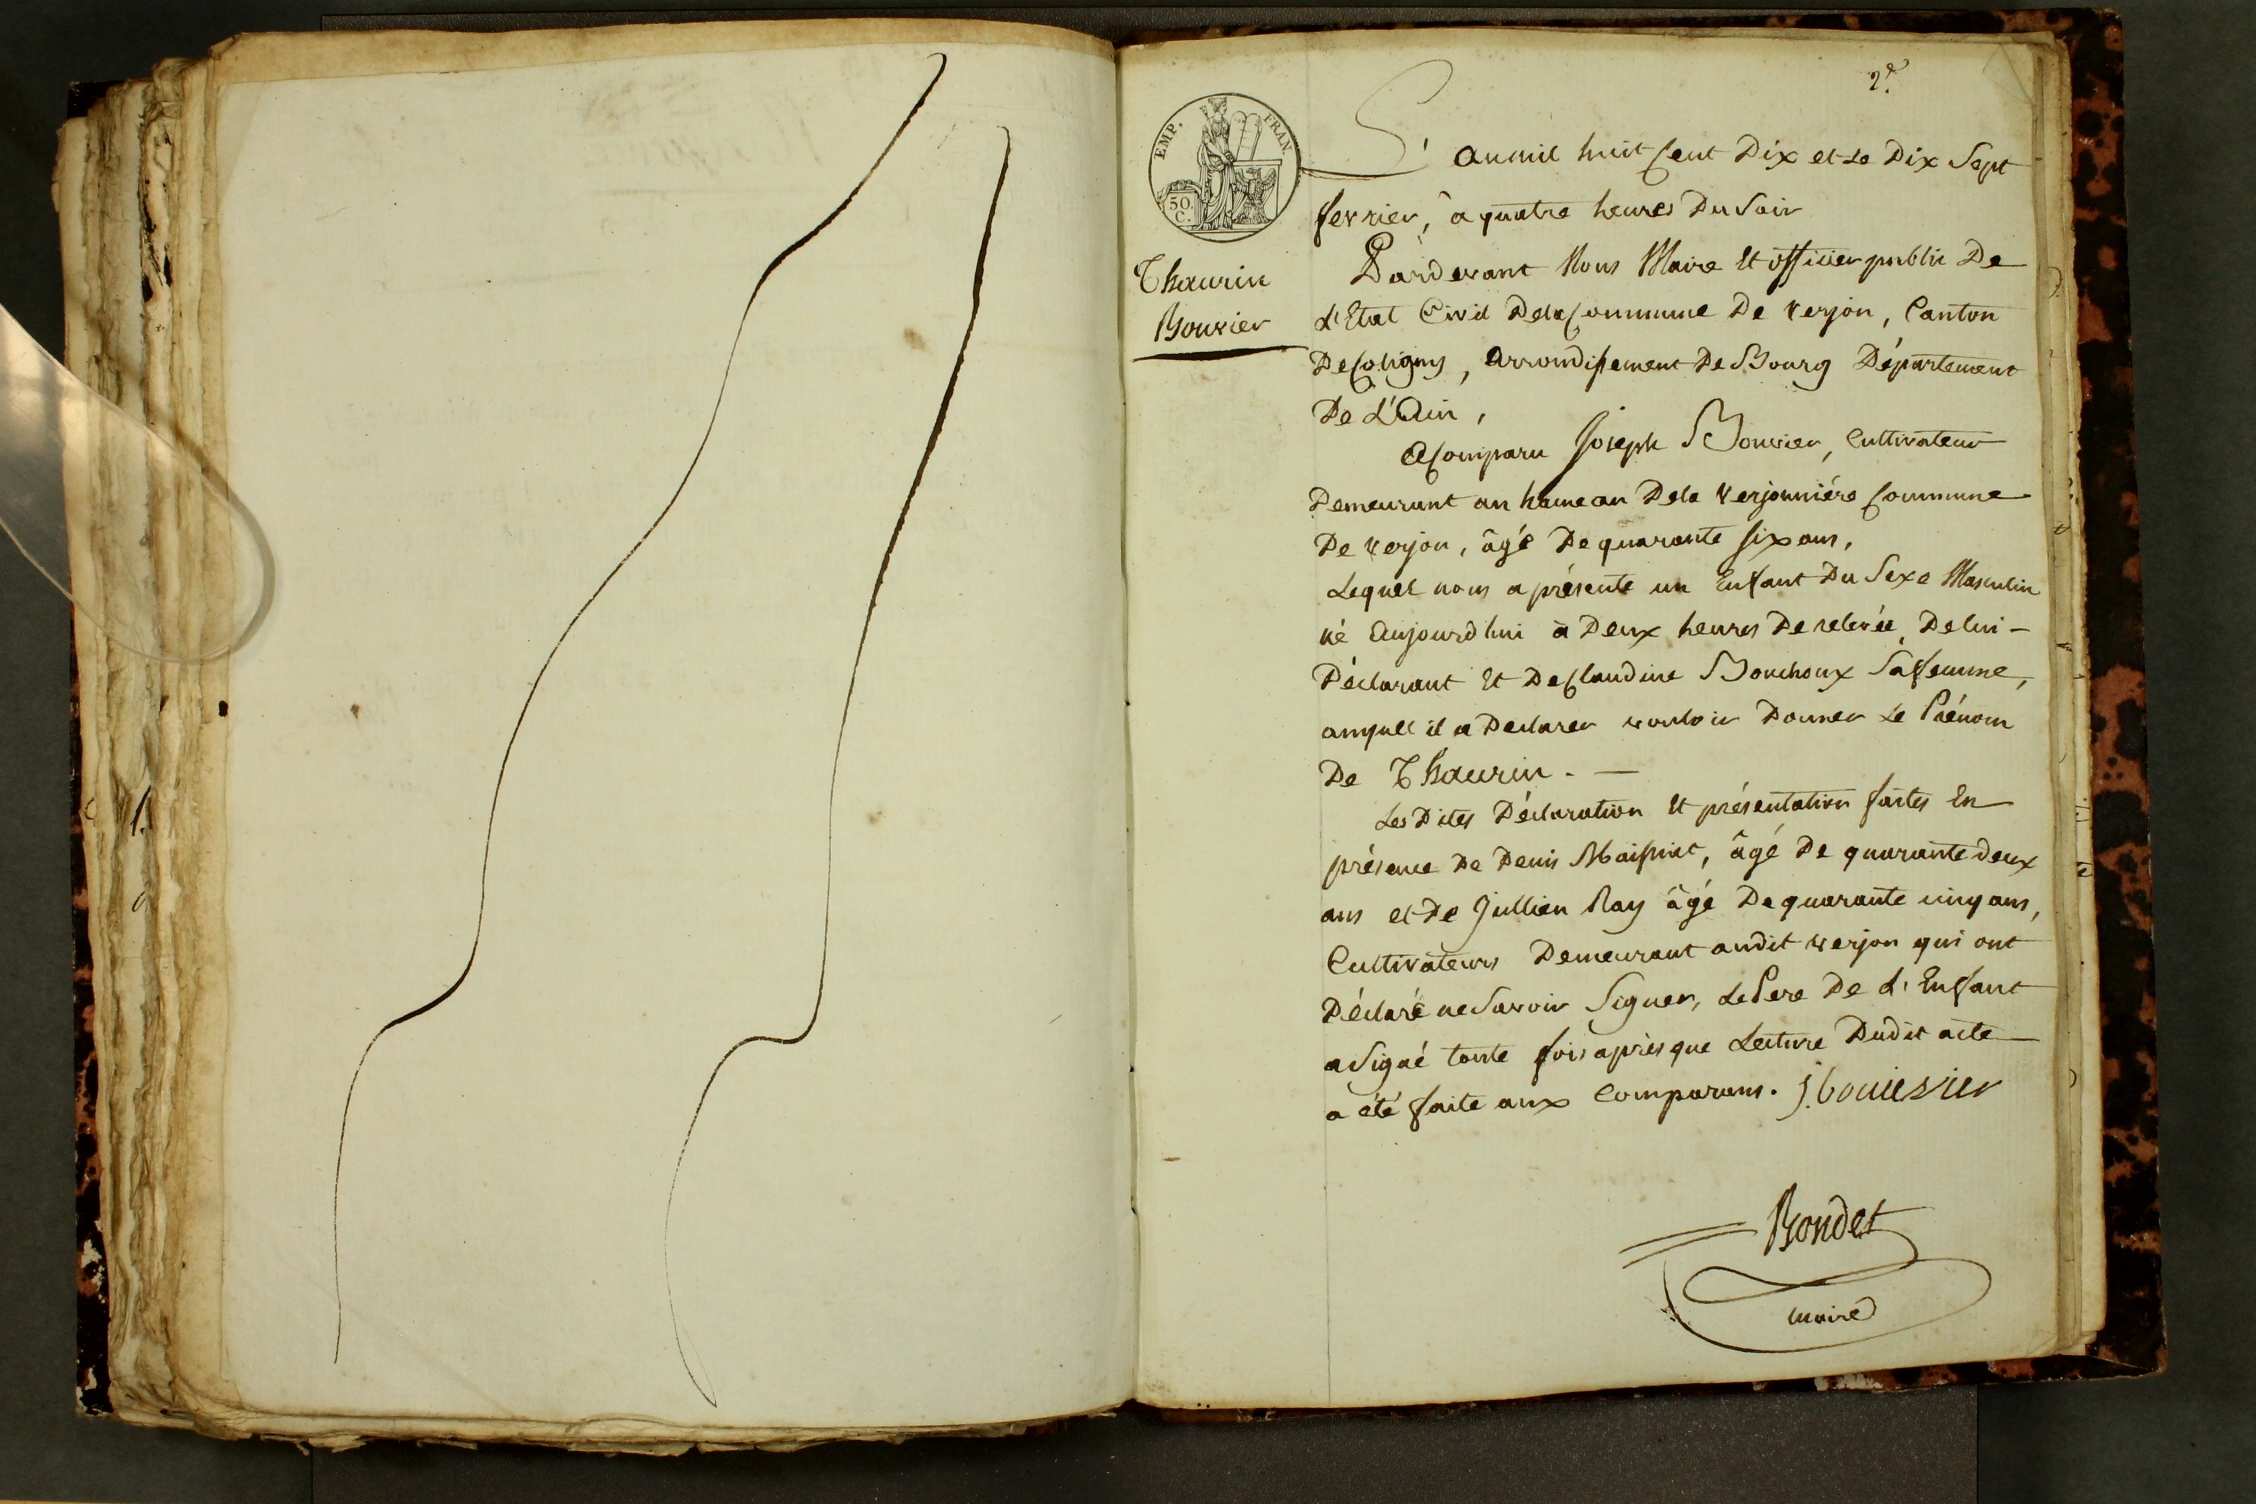 2e.
EMP. FRAN.
50.
C.
L'an mil huit Cent Dix et Le Dix Sept
fevrier, à quatre heures Du Soir
Pardevant Nous Maire Et officier public De
L'Etat Civil De la Commune De Verjon, Canton
De Coligny, Arrondissement De Bourg Département
De L'Ain,
Thaurin
Bouvier
A Comparu Joseph Bouvier, Cultivateur
Demeurant au hameau De la Verjonniére Commune
De Verjon, âgé De quarante Six ans,
Lequel nous a présenté un Enfant Du Sexe Masculin
né Aujourd'hui à Deux heures De relevée, De lui -
Déclarant Et De Claudine Bouchoux Sa femme,
auquel il a Declarer vouloir Donner Le Prénom
De Thaurin. -
Les Dites Déclaration Et présentation faites En
présence De Denis Maissiat, âgé De quarante deux
ans et De Jullien Ray âgé De quarante cinq ans,
Cultivateurs Demeurant audit Verjon qui ont
Déclaré ne Savoir Signer, Le Pere De L'Enfant
a Signé toute fois après que Lecture Dudit acte
a été faite aux Comparans. J. bouievier
Bondet
maire
1.